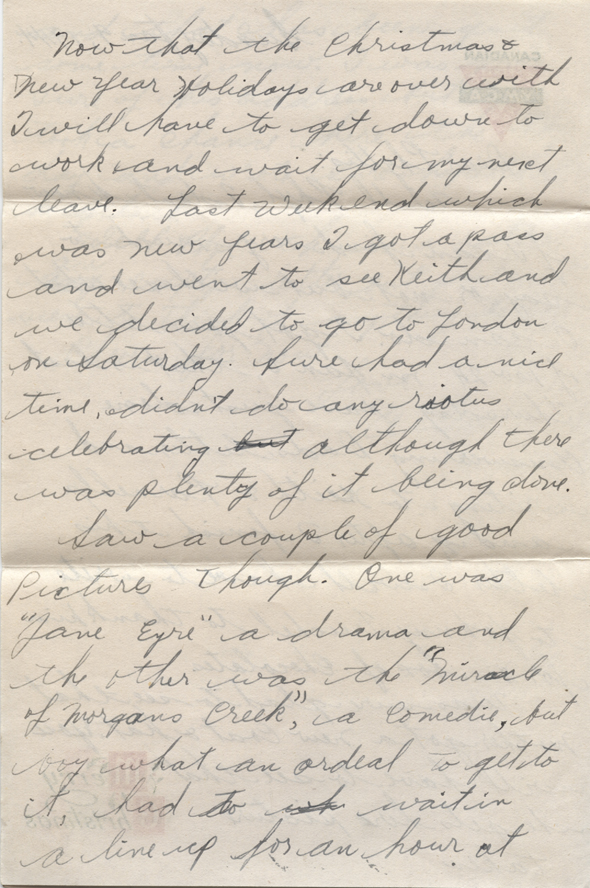 Now that the Christmas &
New Year Holidays are over with
I will have to get down to
work and wait for my next
leave. Last Weekend which
was New Years I got a pass
and went to see Keith and
we decided to go to London
on Saturday. Sure had a nice
time, didn't do any riotus
celebrating but although there
was plenty of it being done.
Saw a couple of good
Pictures though. One was
"Jane Eyre" a drama and
the other was the "Miracle
of Morgans Creek", a Comedie, but
boy what an ordeal to get to
it, had to wait in
a line up for an hour at